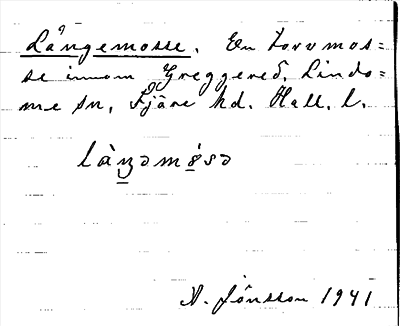 Långemosse. En torvmos=
se inom Greggered, Lindo=
me sn, Fjäre hd. Hall. l.
làŋəmósə
A. Jönsson 1941